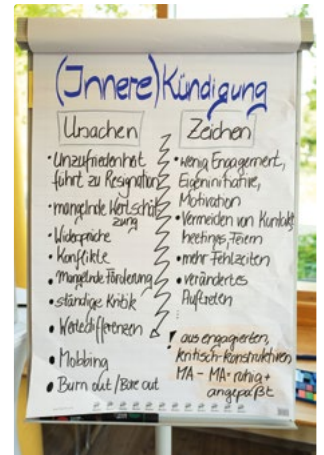 (Innere) Kündigung
Ursachen
• Unzufriedenheit
führt zu Resignation
• mangelnde Wertschät
zung
• Widersprüche
• Konflikte
• Mangelnde Förderung
• ständige Kritik
• Wertedifferenzen
• Mobbing
• Burn out / Bore out
Zeichen
• wenig Engagement,
Eigeninitiative,
Motivation
• Vermeiden von Kontakt
Meetings, Feiern
• mehr Fehlzeiten
• verändertes
Auftreten
:
aus engagierten,
kritisch-konstruktiven
MA – MA = ruhig +
angepaßt